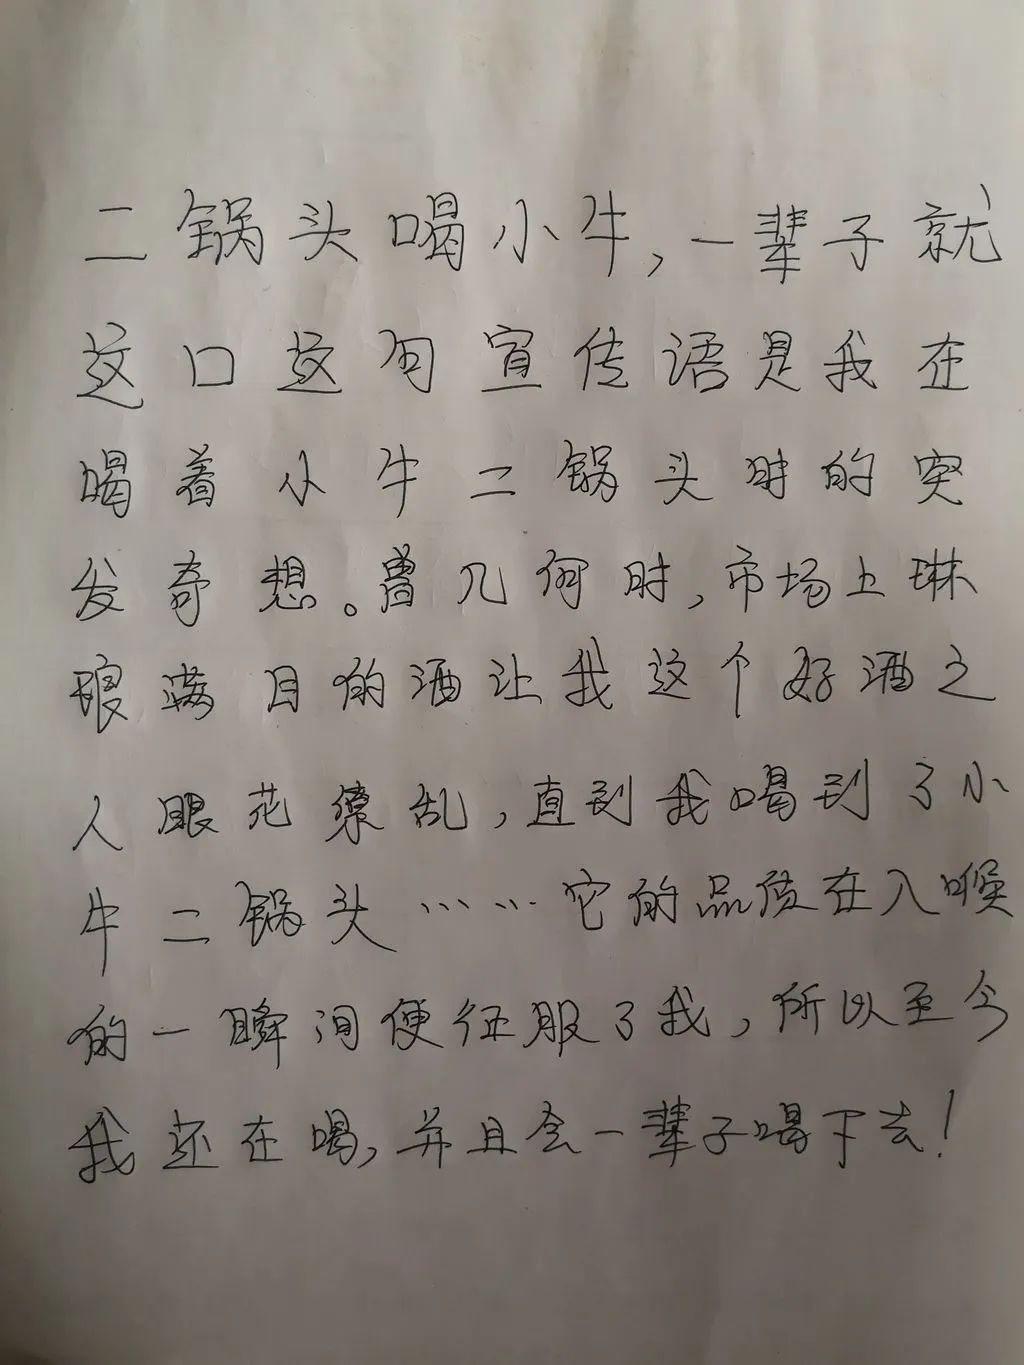 二锅头喝小牛,一辈子就
这口这句宣传语是我在
喝着小牛二锅头时的突
发奇想。曾几何时,市场上琳
琅满目的酒让我这个好酒之
人眼花缭乱,直到我喝到了小
牛二锅头……它的品质在入喉
的一瞬间便征服了我,所以至今
我还在喝,并且会一辈子喝下去!